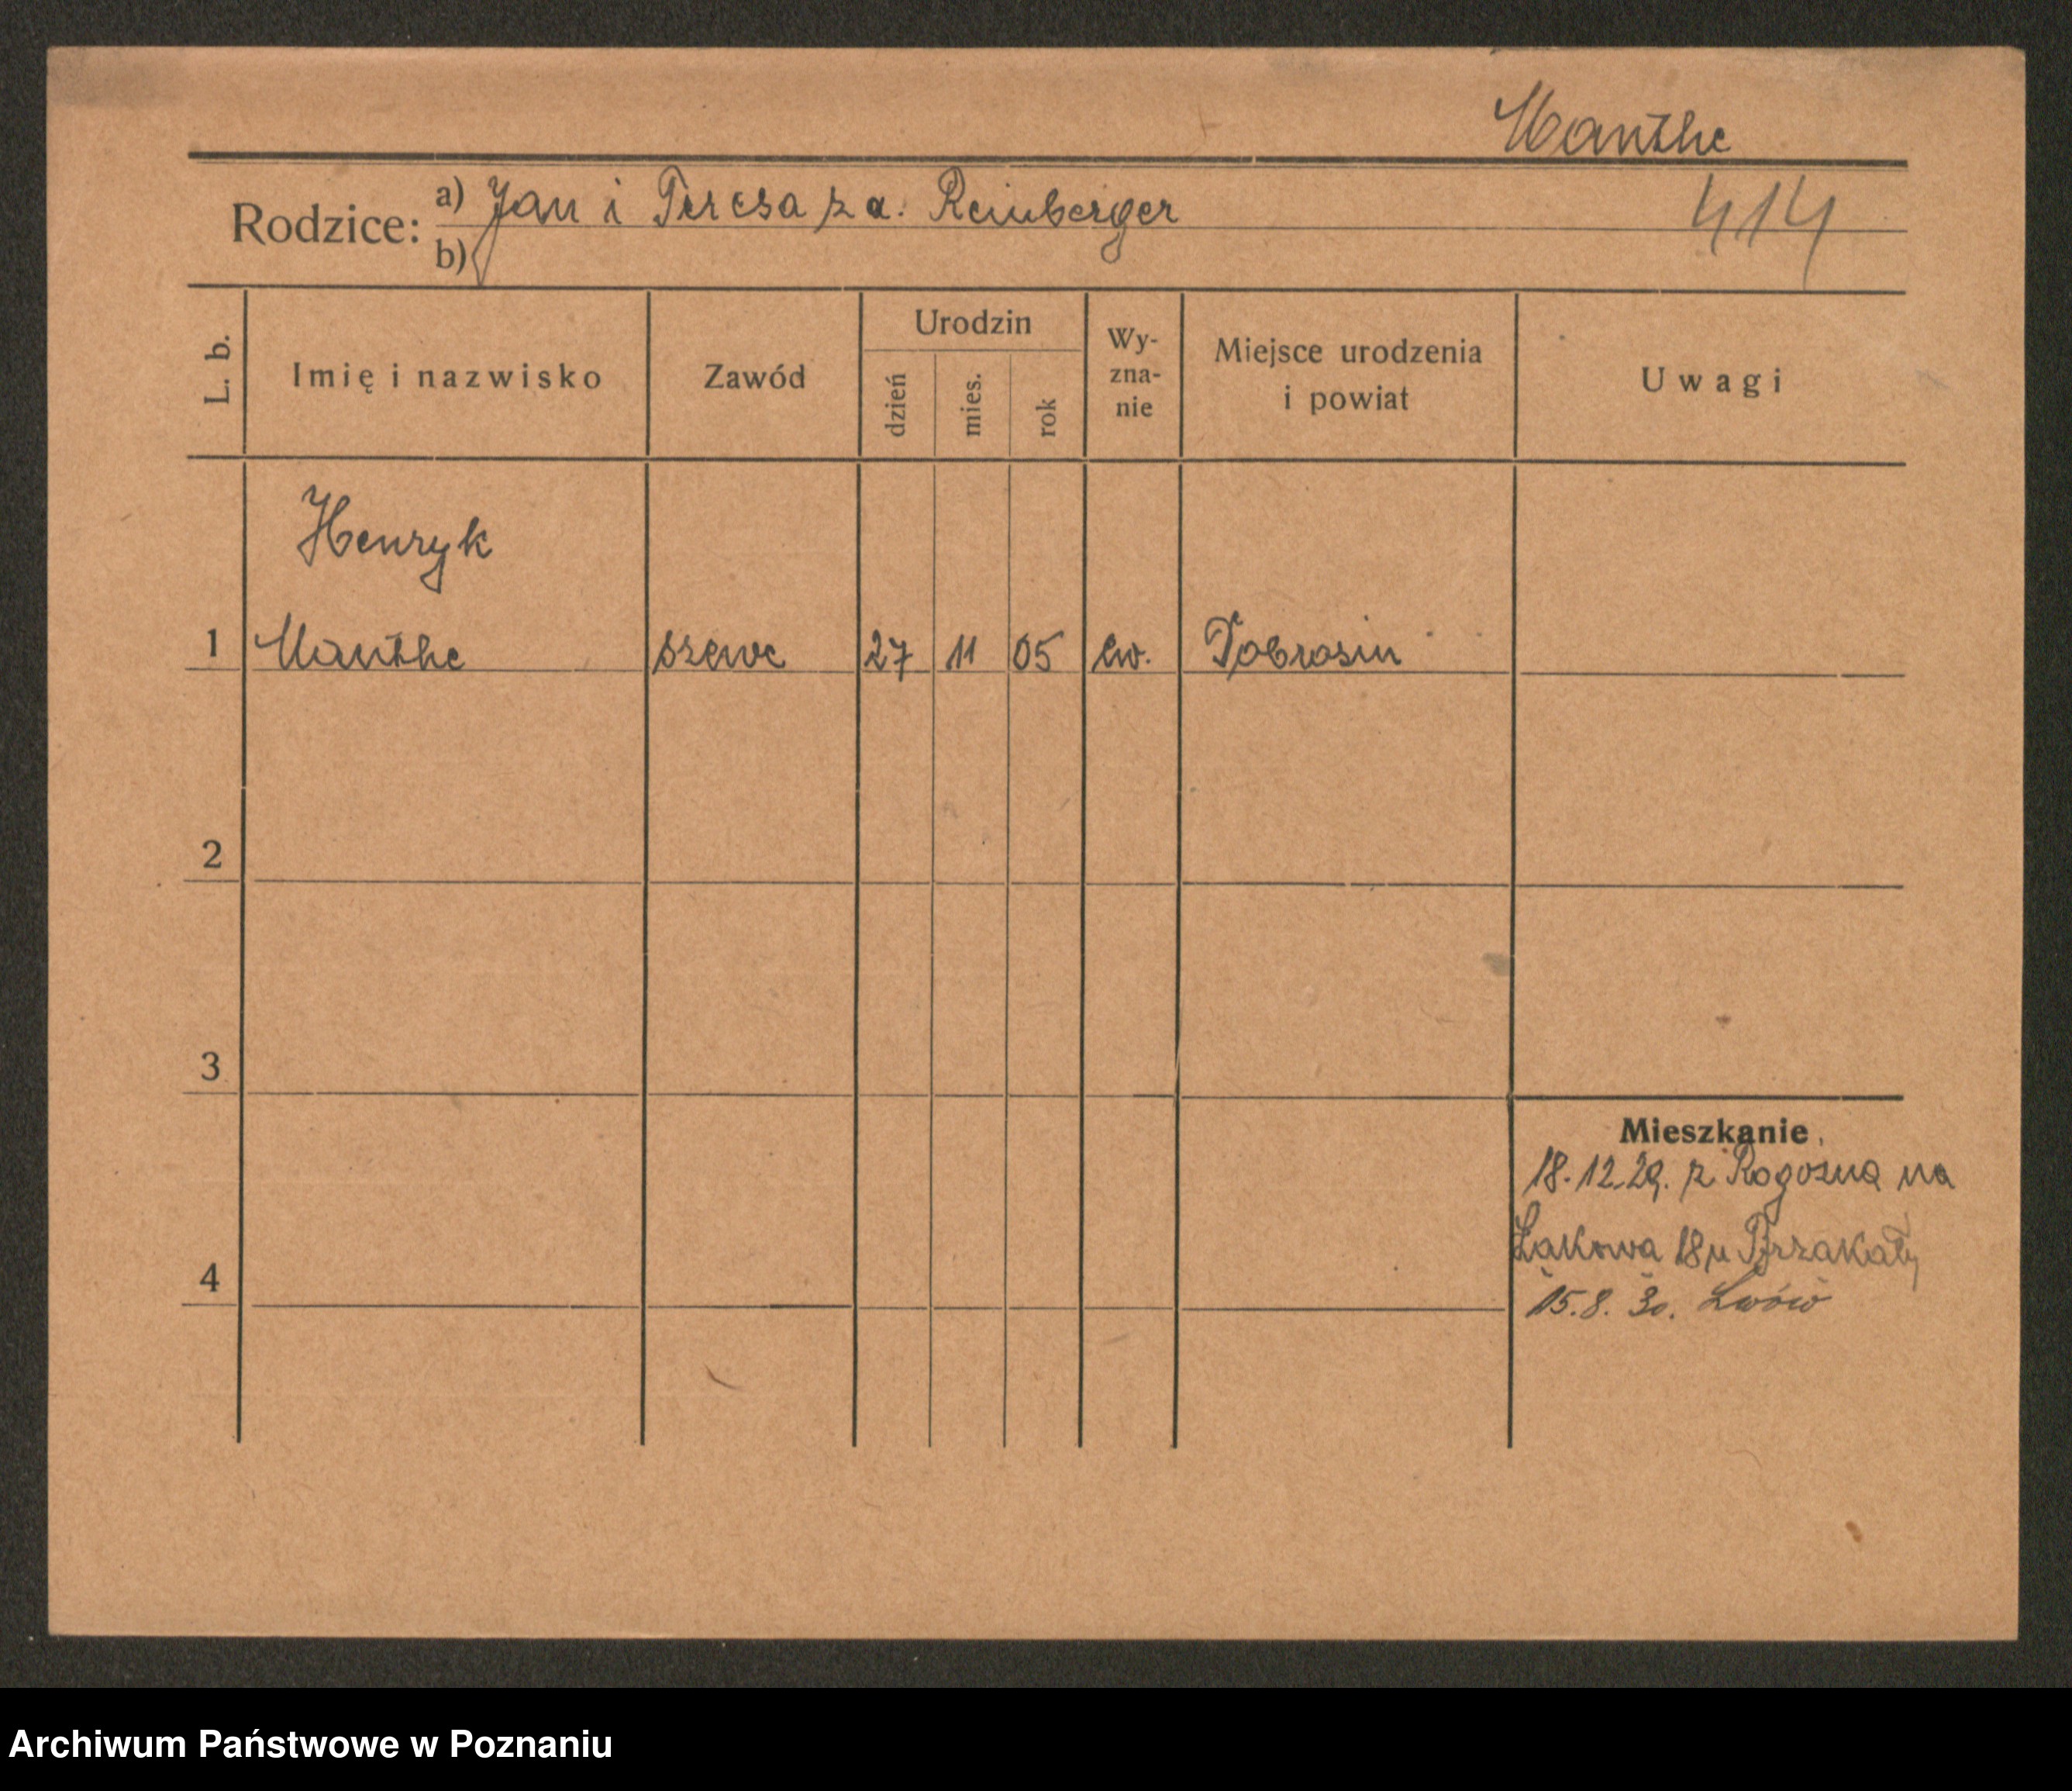 Manthe
Rodzice: a) Jan i Teresa z d. Reinberger
b)
414
L. b. Imię i nazwisko Zawód Urodzin dzień mies. rok Wy-zna-nie Miejsce urodzenia i powiat Uwagi
Henryk
1 Manthe szewc 27 11 05 ew. Dobrosin
2
3
Mieszkanie
18.12.29. z Rogozna na
Łakowa 18 u Brzakały
4
15.8.30. Lwów
Archiwum Państwowe w Poznaniu